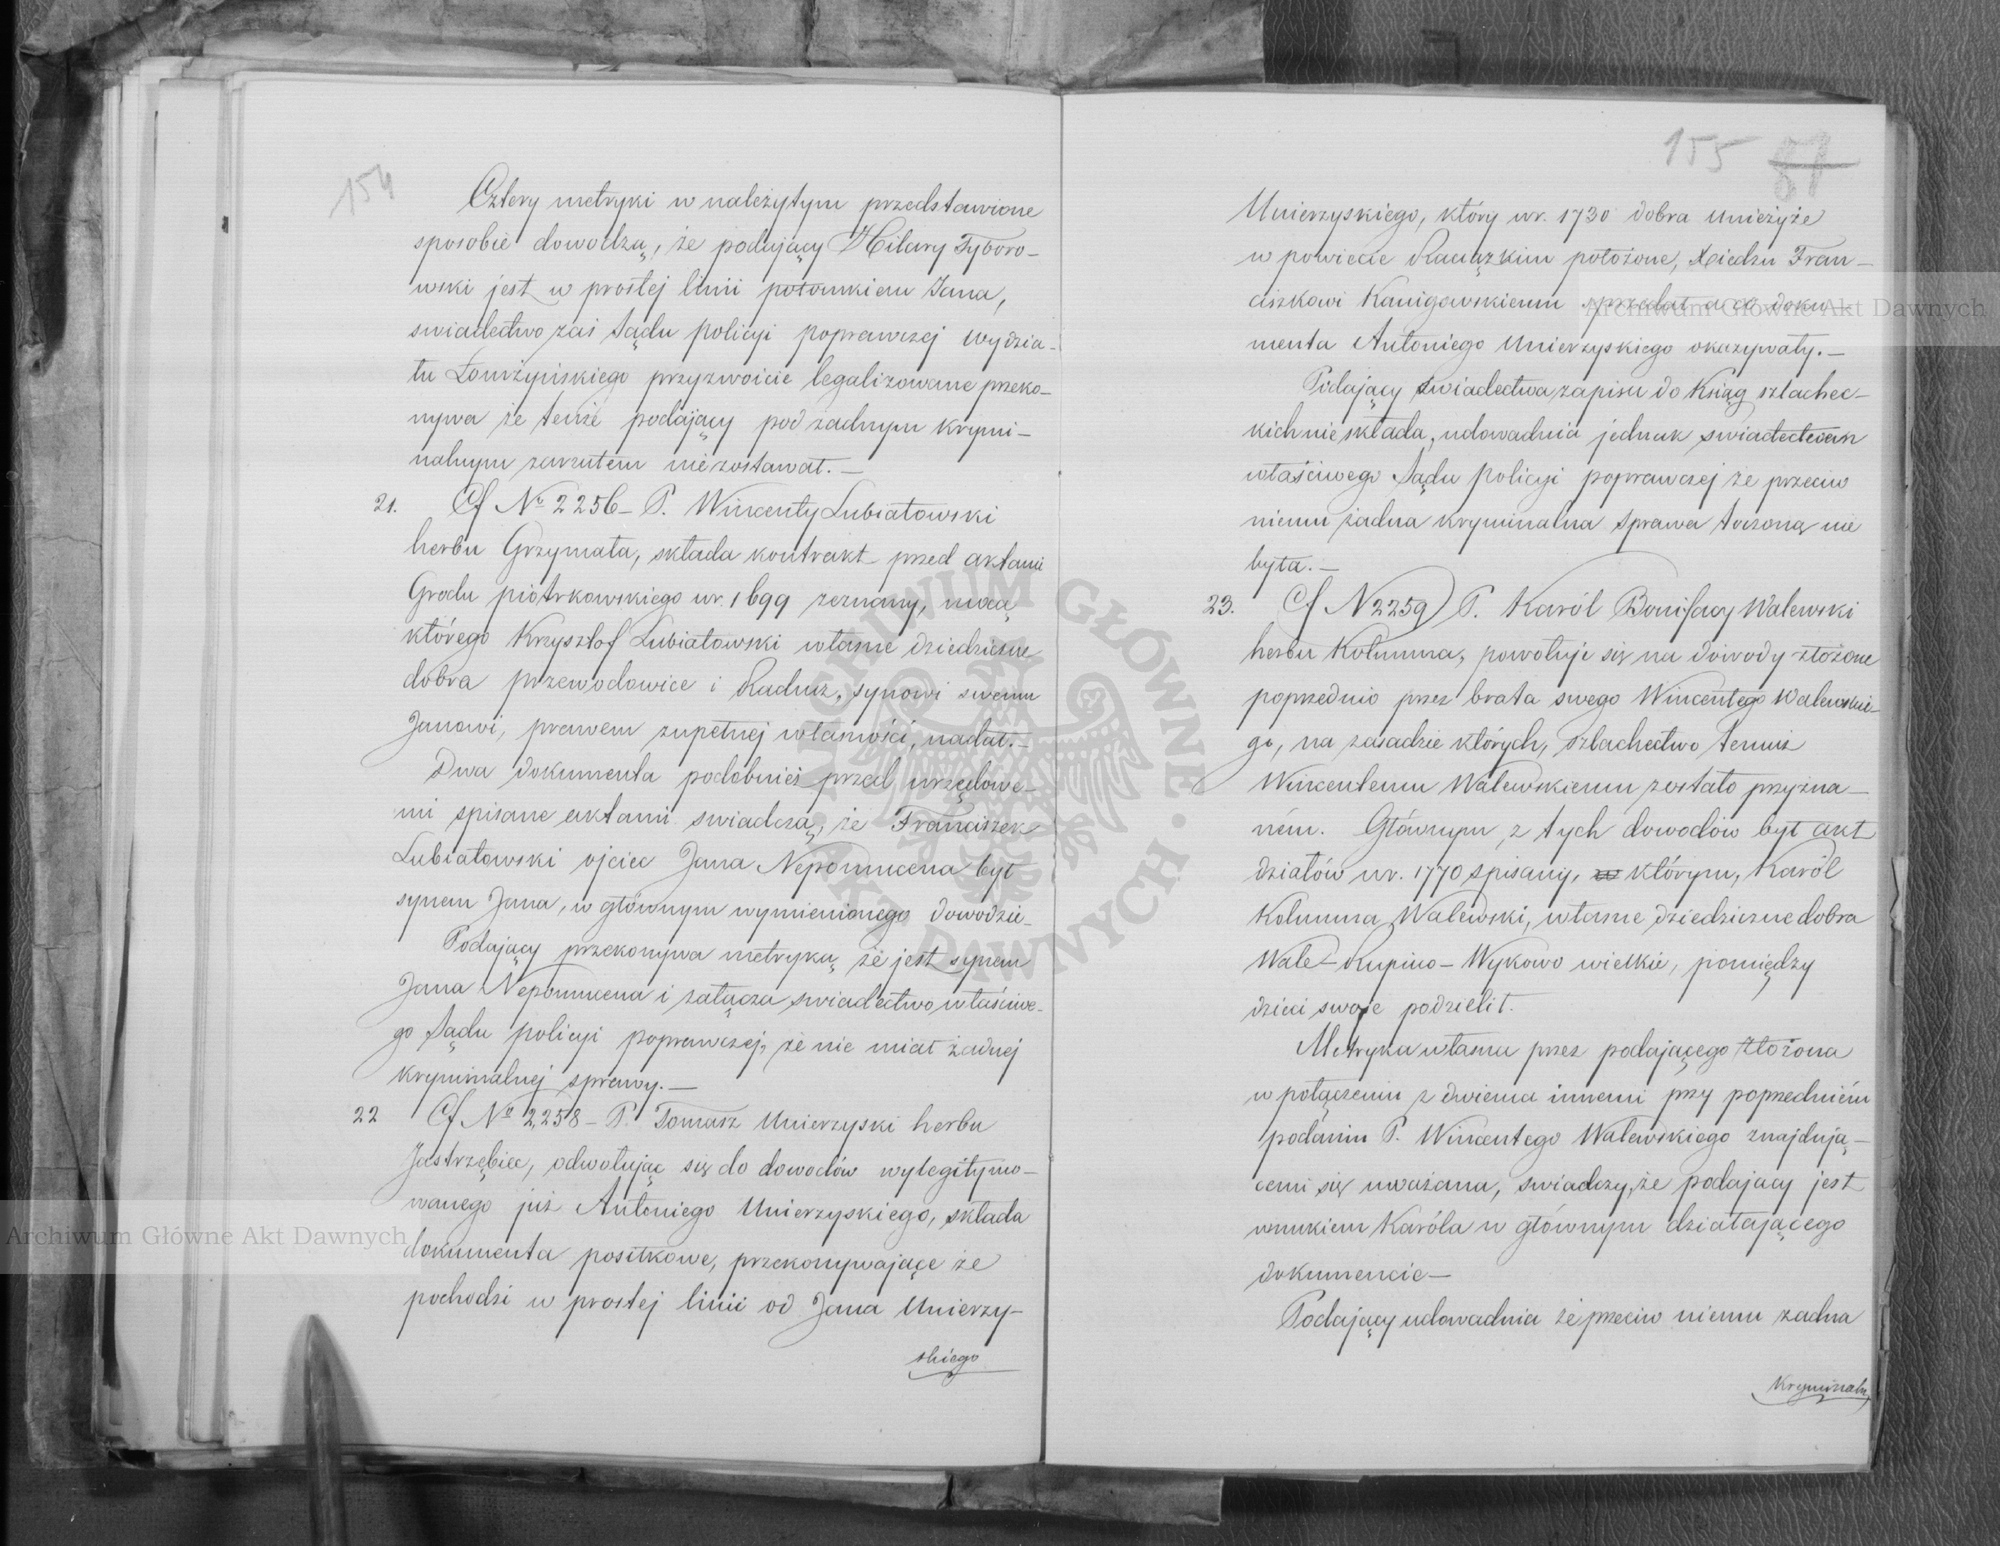 154
Cztery metryki w należytym przedstawione
sposobie dowodzą, że podający Hilary Tyboro-
wski jest w prostej linii potomkiem Jana,
swiadectwo zaś Sądu policyi poprawczej Wydzia-
łu Łomżyńskiego przyzwoicie legalizowane przeko-
nywa że tenże podający pod żadnym krymi-
nalnym zarzutem nie zostawał.—
21. Cf № 2256 – P. Wincenty Lubiatowski
herbu Grzymała, składa kontrakt przed aktami
Grodu piotrkowskiego w r. 1699 zeznany, mocą
którego Krzysztof Lubiatowski własne dziedziczne
dobra Przewodowice i Raducz, synowi swemu
Janowi, prawem zupełnej własności, nadał.—
Dwa dokumenta podobnież przed urzędowe-
mi spisane aktami swiadczą, że Franciszek
Lubiatowski ojciec Jana Nepomucena był
synem Jana, w głównym wymienionego dowodzie.
Podający przekonywa metryką że jest synem
Jana Nepomucena i załącza swiadectwo właściwe-
go Sądu policyi poprawczej, że nie miał żadnej
kryminalnej sprawy.—
22 Cf № 2,258 – P. Tomasz Unierzyski herbu
Jastrzębiec, odwołując się do dowodów wylegitymo-
wanego już Antoniego Unierzyskiego, składa
dokumenta posiłkowe, przekonywające że
pochodzi w prostej linii od Jana Unierzy-
skiego
155 87
Unierzyskiego, który w r. 1730 dobra Unieżyże
w powiecie Raciązkim położone, Xiedzu Fran-
ciszkowi Kanigowskiemu sprzedał a co doku-
menta Antoniego Unierzyskiego okazywały.—
Podający swiadectwa zapisu do Ksiąg szlachec-
kich nie składa, udowadnia jednak swiadectwem
właściwego Sądu policyi poprawczej że przeciw
niemu żadna kryminalna sprawa toczoną nie
była.—
23. Cf N 2259) P. Karól Bonifacy Walewski
herbu Kolumna, powołuje się na dowody złożone
poprzednio przez brata swego Wincentego Walewskie-
go, na zasadzie których, szlachectwo temuż
Wincentemu Walewskiemu zostało przyzna-
ném. Głównym z tych dowodów był akt
działów w r. 1770 spisany, w którym, Karól
Kolumna Walewski, własne dziedziczne dobra
Wale-Rupino – Wykowo wielkie, pomiędzy
dzieci swoje podzielił.
Metryka własna przez podającego złożona
w połączeniu z dwiema innemi przy poprzedniém
podaniu P. Wincentego Walewskiego znajdują-
cemi się uważana, swiadczy, że podający jest
wnukiem Karóla w głównym działającego
dokumencie—
Podający udowadnia że przeciw niemu żadna
kryminaln
Archiwum Główne Akt Dawnych
Archiwum Główne Akt Dawnych
ARCHIWUM GŁÓWNE · AKT DAWNYCH ·